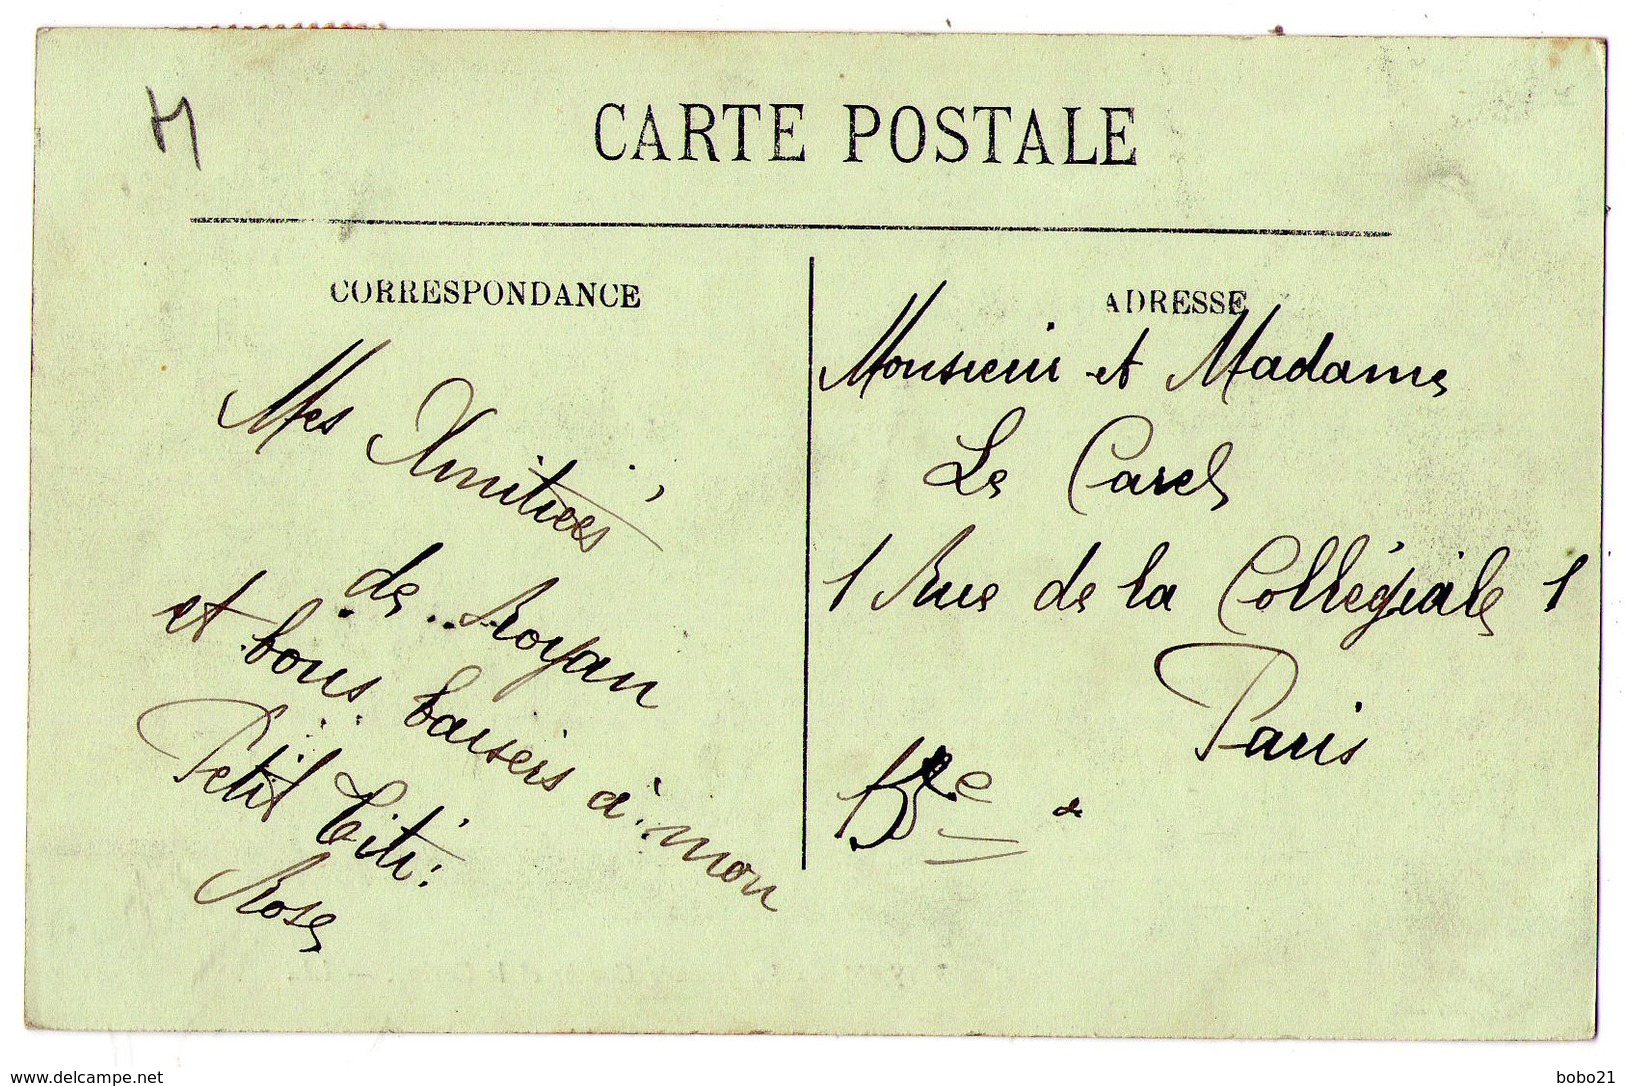 H
CARTE POSTALE
CORRESPONDANCE
Mes Amitiées
de Royan
et bons baisers à mon
Petit Titi.
Rose
ADRESSE
Monsieur et Madame
Le Carel
1 Rue de la Collégiale 1
Paris
www.delcampe.net
bobo21